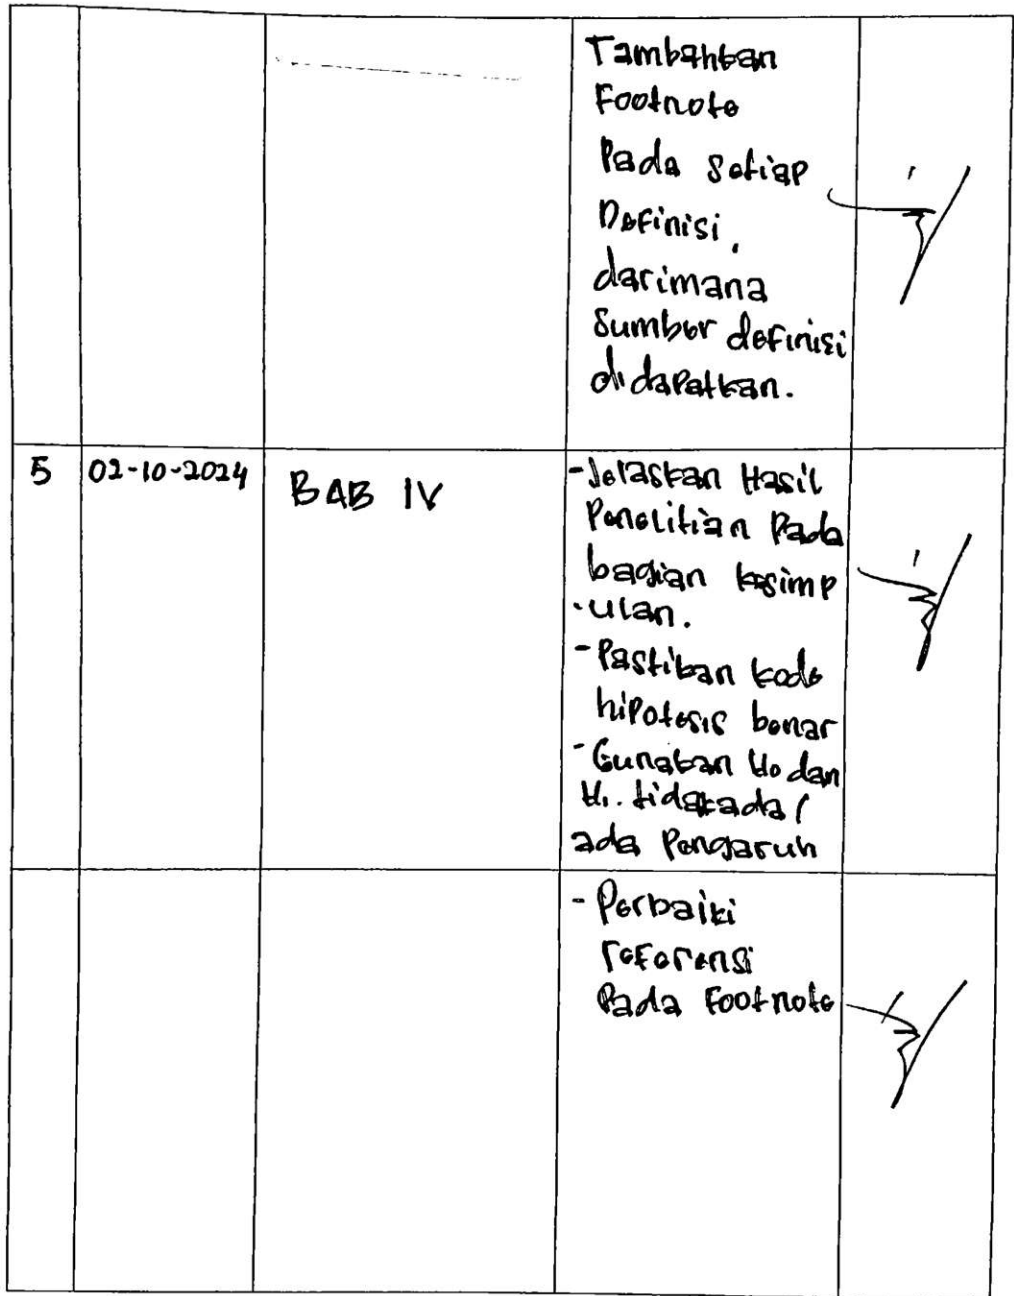 Tambahkan
Footnote
Pada Setiap
Definisi,
darimana
Sumber definisi
didapatkan.
5 02-10-2024 BAB IV
-Jelaskan Hasil
Penelitian Pada
bagian kesimp
-ulan.
-Pastikan kode
hipotesis benar
-Gunakan Ho dan
H1. tidak ada /
ada Pengaruh
-Perbaiki
referensi
Pada Footnote